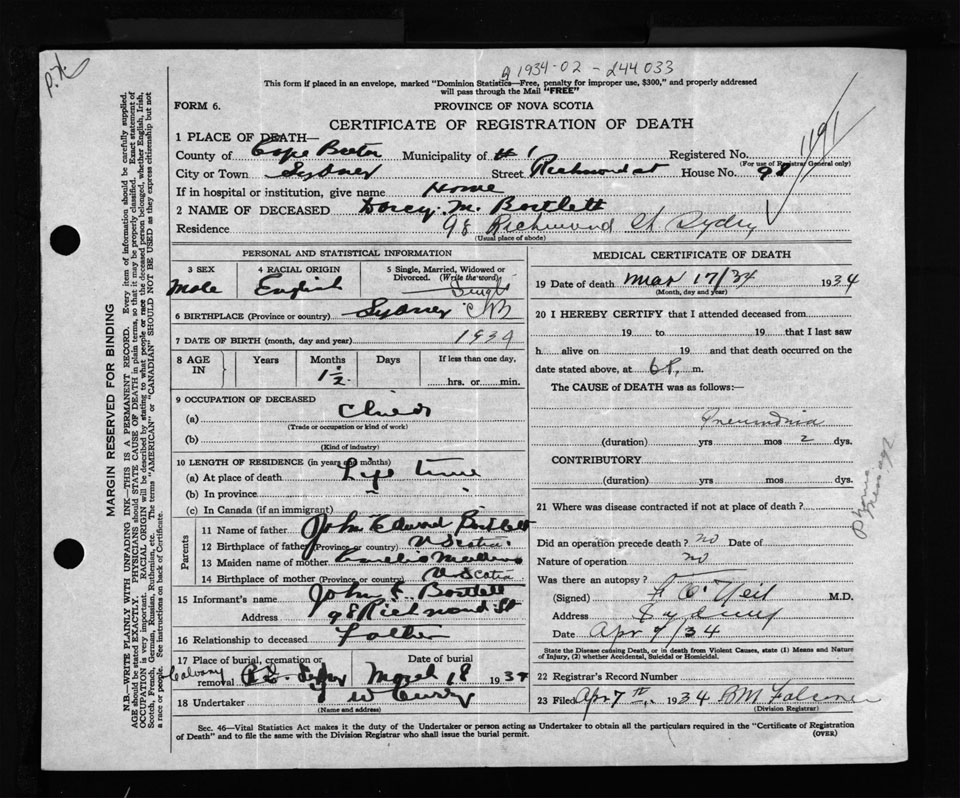 P.X.
A 1934-02-244033
This form if placed in an envelope, marked "Dominion Statistics—Free, penalty for improper use, $300," and properly addressed
will pass through the Mail "FREE"
FORM 6.
PROVINCE OF NOVA SCOTIA
CERTIFICATE OF REGISTRATION OF DEATH
1191
1 PLACE OF DEATH—
County of Cape Breton Municipality of #1 Registered No.
(For use of Registrar General only)
City or Town Sydney Street Richmond st House No. 98
If in hospital or institution, give name Home
2 NAME OF DECEASED M. Bartlett
Residence 98 Richmond St Sydney
(Usual place of abode)
PERSONAL AND STATISTICAL INFORMATION
3 SEX Male
4 RACIAL ORIGIN English
5 Single, Married, Widowed or Divorced. (Write the word) Single
6 BIRTHPLACE (Province or country) Sydney CB
7 DATE OF BIRTH (month, day and year) 1934
8 AGE IN Years Months Days If less than one day,
1 ½ hrs. or min.
9 OCCUPATION OF DECEASED
(a) Child
(Trade or occupation or kind of work)
(b)
(Kind of industry)
10 LENGTH OF RESIDENCE (in years and months)
(a) At place of death Life time
(b) In province " "
(c) In Canada (if an immigrant)
Parents
11 Name of father John Edward Bartlett
12 Birthplace of father (Province or country) N Scotia
13 Maiden name of mother
14 Birthplace of mother (Province or country) N Scotia
15 Informant's name John E. Bartlett
Address 98 Richmond St
16 Relationship to deceased Father
17 Place of burial, cremation or removal Calvary Date of burial March 18 1934
18 Undertaker W Curry
(Name and address)
MEDICAL CERTIFICATE OF DEATH
19 Date of death Mar 17/34 1934
(Month, day and year)
20 I HEREBY CERTIFY that I attended deceased from
19 to 19 that I last saw
h alive on 19 and that death occurred on the
date stated above, at 6 P. m.
The CAUSE of DEATH was as follows:—
Pneumonia
(duration) yrs mos 2 dys.
CONTRIBUTORY
(duration) yrs mos dys.
Phone message
21 Where was disease contracted if not at place of death?
Did an operation precede death? no Date of
Nature of operation no
Was there an autopsy?
(Signed) O'Neil M.D.
Address Sydney
Date Apr 7/34
State the Disease causing Death, or in death from Violent Causes, state (1) Means and Nature
of Injury, (2) whether Accidental, Suicidal or Homicidal.
22 Registrar's Record Number
23 Filed Apr 7th 1934 B M
(Division Registrar)
Sec. 46—Vital Statistics Act makes it the duty of the Undertaker or person acting as Undertaker to obtain all the particulars required in the "Certificate of Registration
of Death" and to file the same with the Division Registrar who shall issue the burial permit.
(OVER)
MARGIN RESERVED FOR BINDING
N.B.—WRITE PLAINLY WITH UNFADING INK—THIS IS A PERMANENT RECORD. Every item of information should be carefully supplied.
AGE should be stated EXACTLY. PHYSICIANS should STATE CAUSE OF DEATH in plain terms, so that it may be properly classified. Exact statement of
OCCUPATION is very important. RACIAL ORIGIN will be described by stating to what people or race the deceased person belonged, whether English, Irish,
Scotch, French, German, Russian, Ruthenian, etc. The terms "AMERICAN" or "CANADIAN" SHOULD NOT BE USED as they express citizenship but not
a race or people. See instructions on back of Certificate.